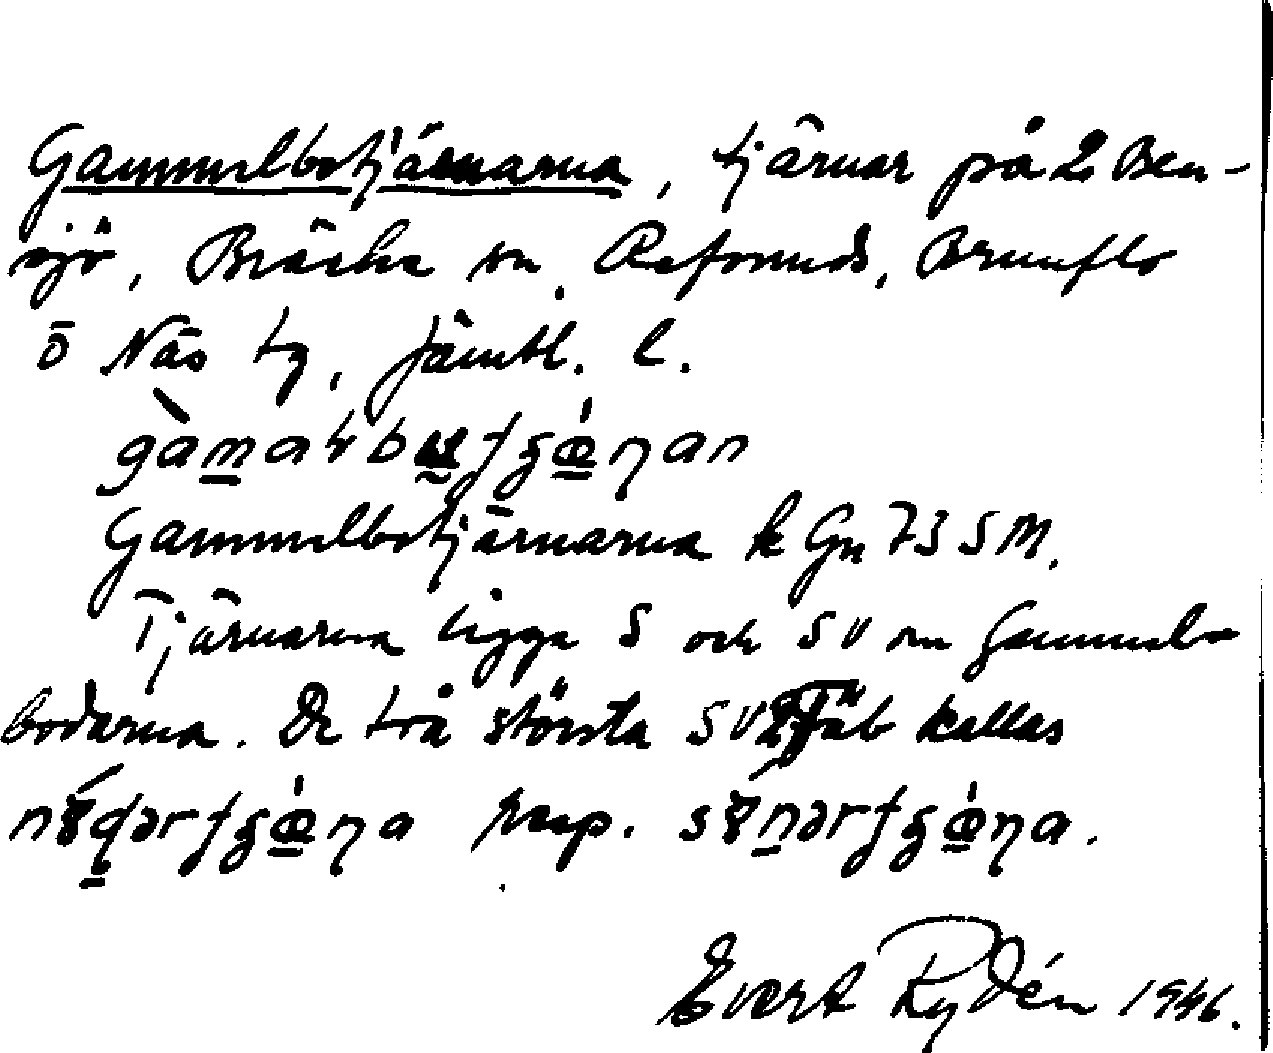 Gammelbotjärnarna, tjärnar på 2 Ben-
sjö, Bräcke sn, Refsunds, Brunflo
o Näs tg, Jämtl. l.
Gammelbotjärnarna k Gn 73 SM.
Tjärnarna ligga S och SV om Gammelbo-
bodarna. De två största SV kallas
resp.
Evert Rydén 1946.